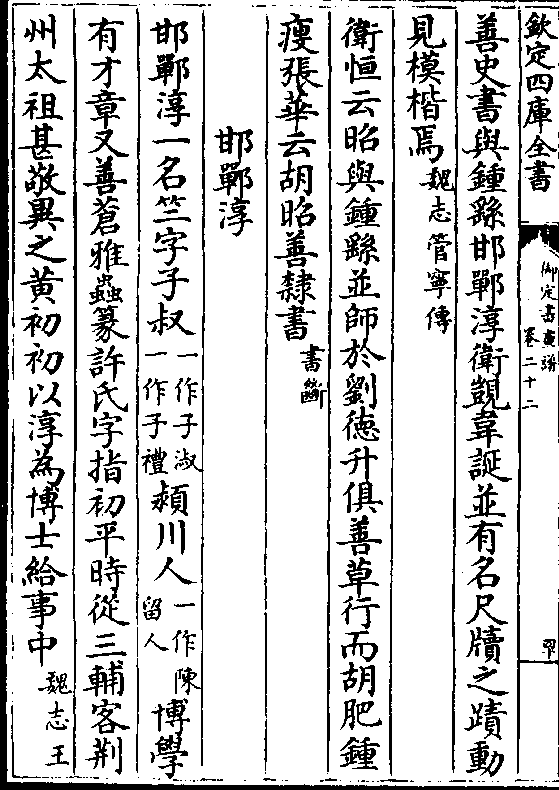 欽定四庫全書
御定書畫譜
卷二十二
善史書與鍾繇邯鄲淳衛覬韋誕並有名尺牘之蹟動
見模楷焉魏志管寧傳
衛恒云昭與鍾繇並師於劉徳升俱善草行而胡肥鍾
瘦張華云胡昭善隸書書斷
邯鄲淳
邯鄲淳一名竺字子叔一作子淑一作子禮潁川人一作陳留人博學
有才章又善蒼雅蟲篆許氏字指初平時從三輔客荆
州太祖甚敬異之黄初初以淳為博士給事中魏志王